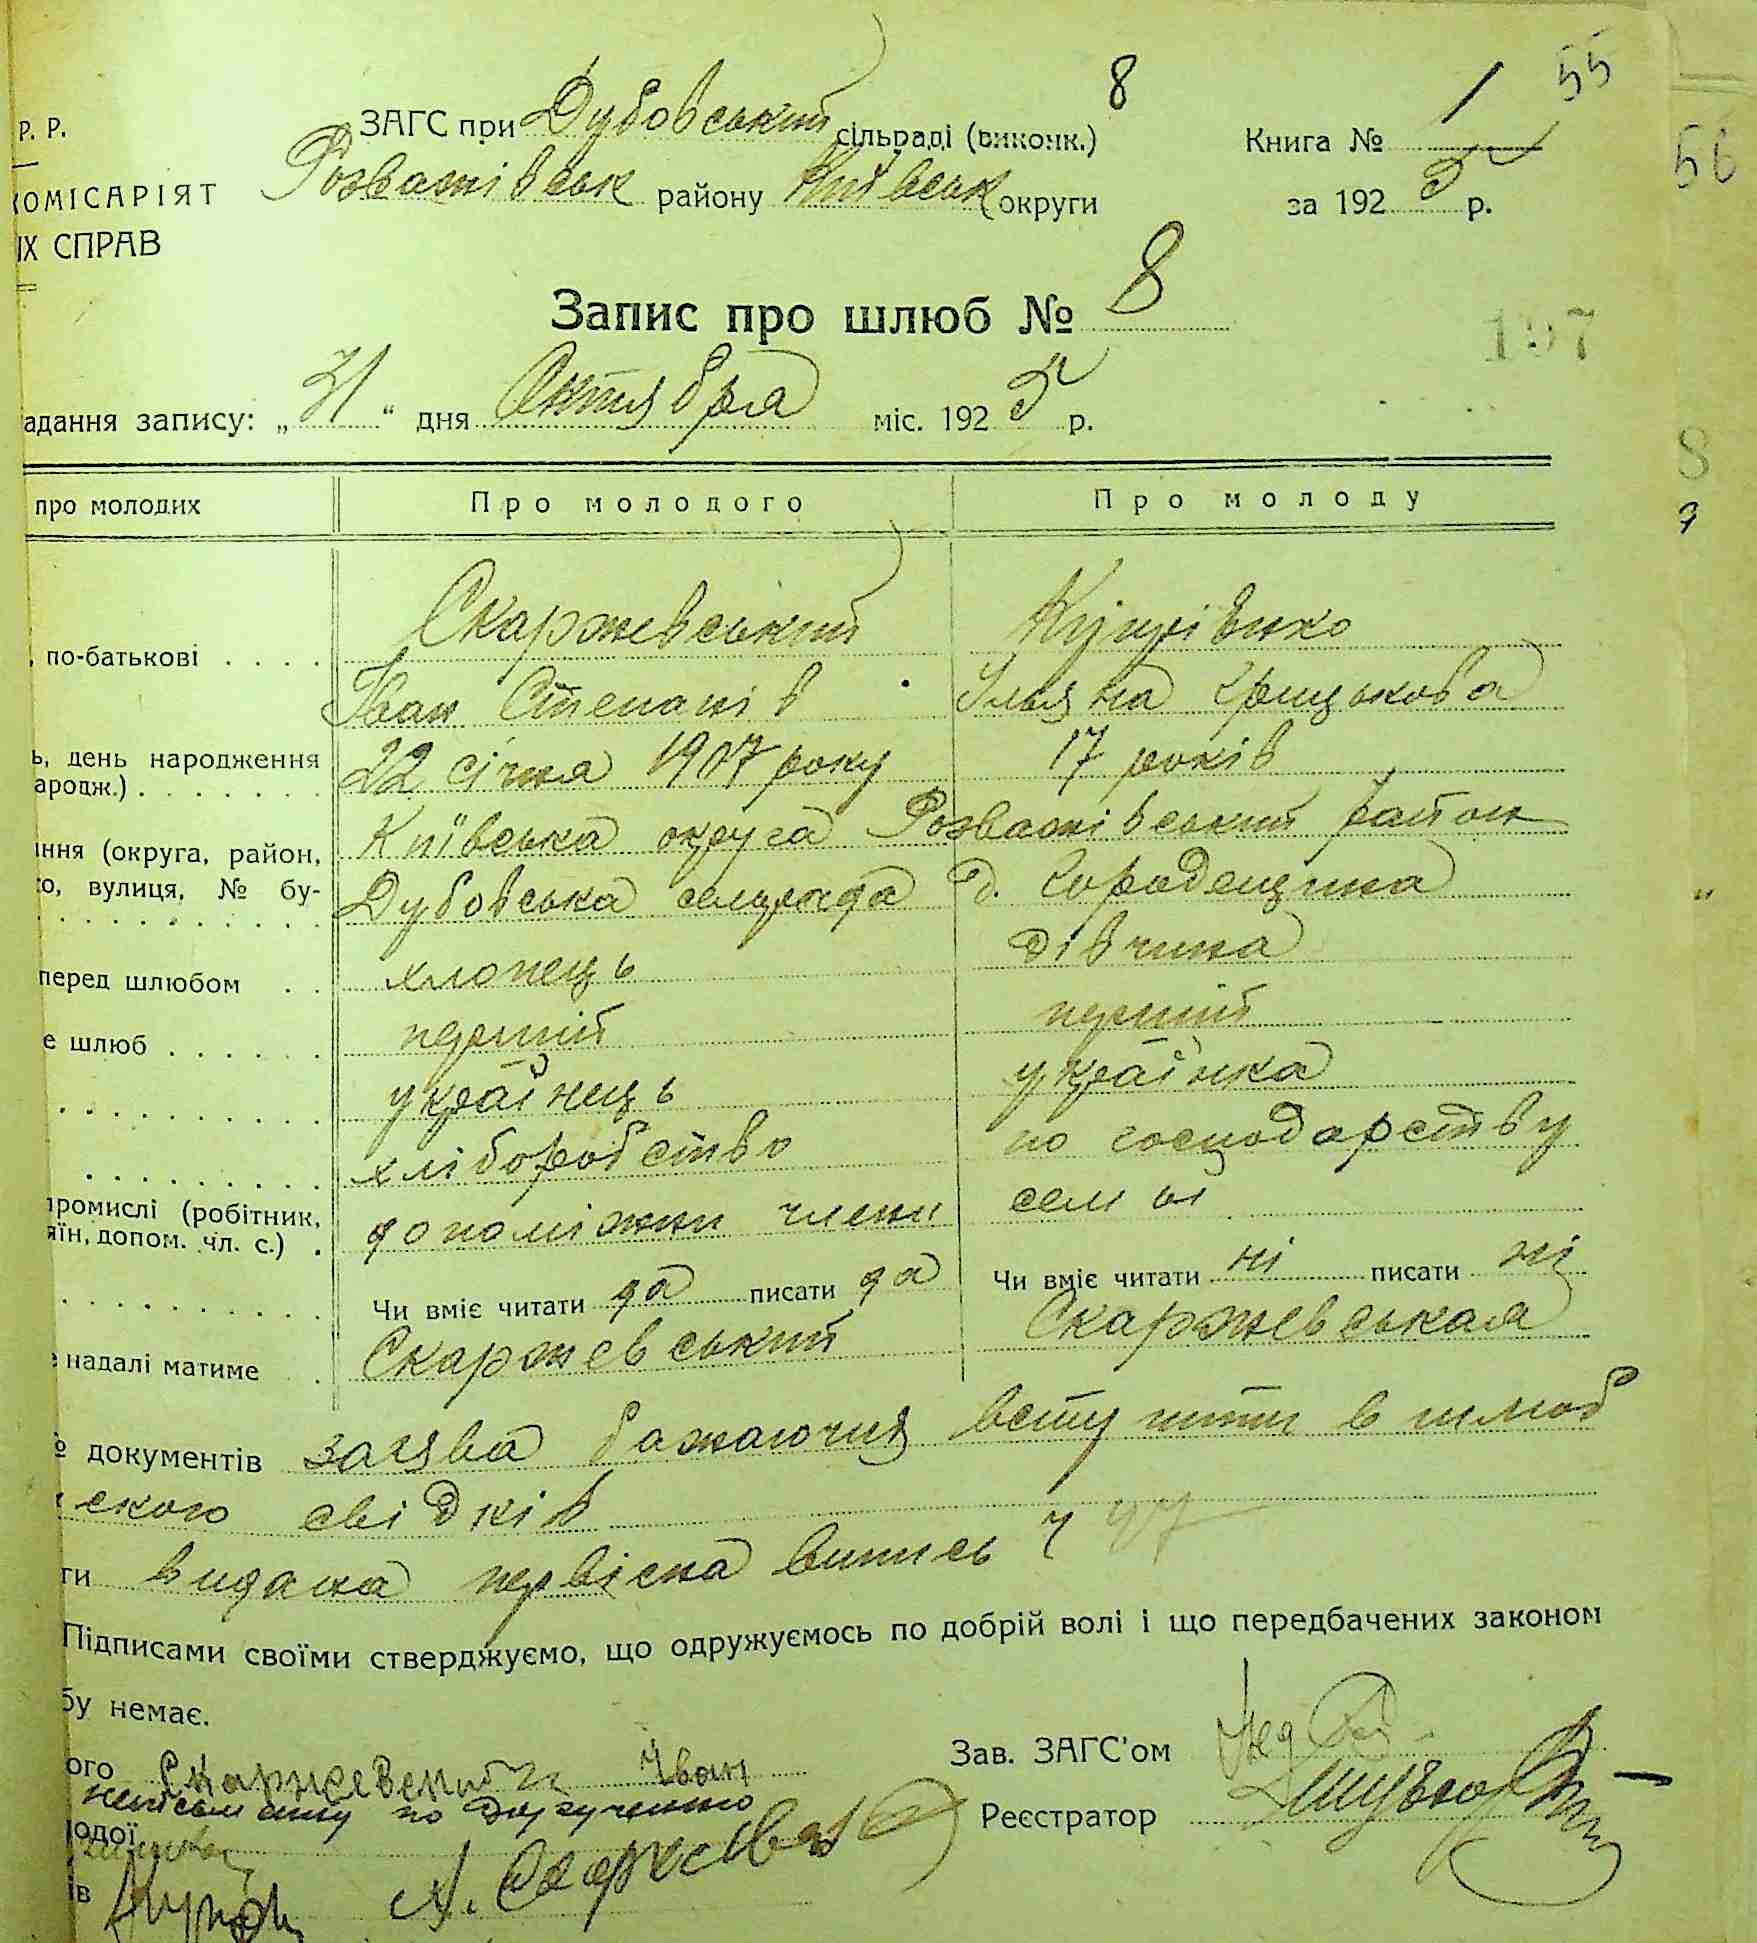 8
55
56
Р. Р.
ЗАГС при Дубовський сільраді (виконк.)
Книга № 1
КОМІСАРІЯТ
Розважівськ району Київськ округи
за 1925 р.
ІХ СПРАВ
Запис про шлюб № 8
197
адання запису: „31“ дня Октября міс. 1925 р.
8
7
про молодих Про молодого Про молоду
Скаржевський
, по-батькові . . . .
Іван Степанів Ульяна Грицькова
ь, день народження 22 січня 1907 року 17 років
ародж.) . . . . . . .
ння (округа, район, Київська округа Розважівський район
о, вулиця, № бу- Дубовська сельрада д. Городещина
перед шлюбом . . хлопець дівчина
е шлюб . . . . . . перший перший
українець українка
хліборобство по господарству
промислі (робітник, допоміжни члени семьи
яїн, допом. чл. с.) .
Чи вміє читати да писати да Чи вміє читати ні писати ні
е надалі матиме . Скаржевський Скаржевськая
№ документів заява бажаючих вступити в шлюб
ского свідків
ти видана первісна випись ч 97
Підписами своїми стверджуємо, що одружуємось по добрій волі і що передбачених законом
бу немає.
ого Скаржевський Іван
Зав. ЗАГС'ом
неписьменну по доручению
одої
Реєстратор
ів